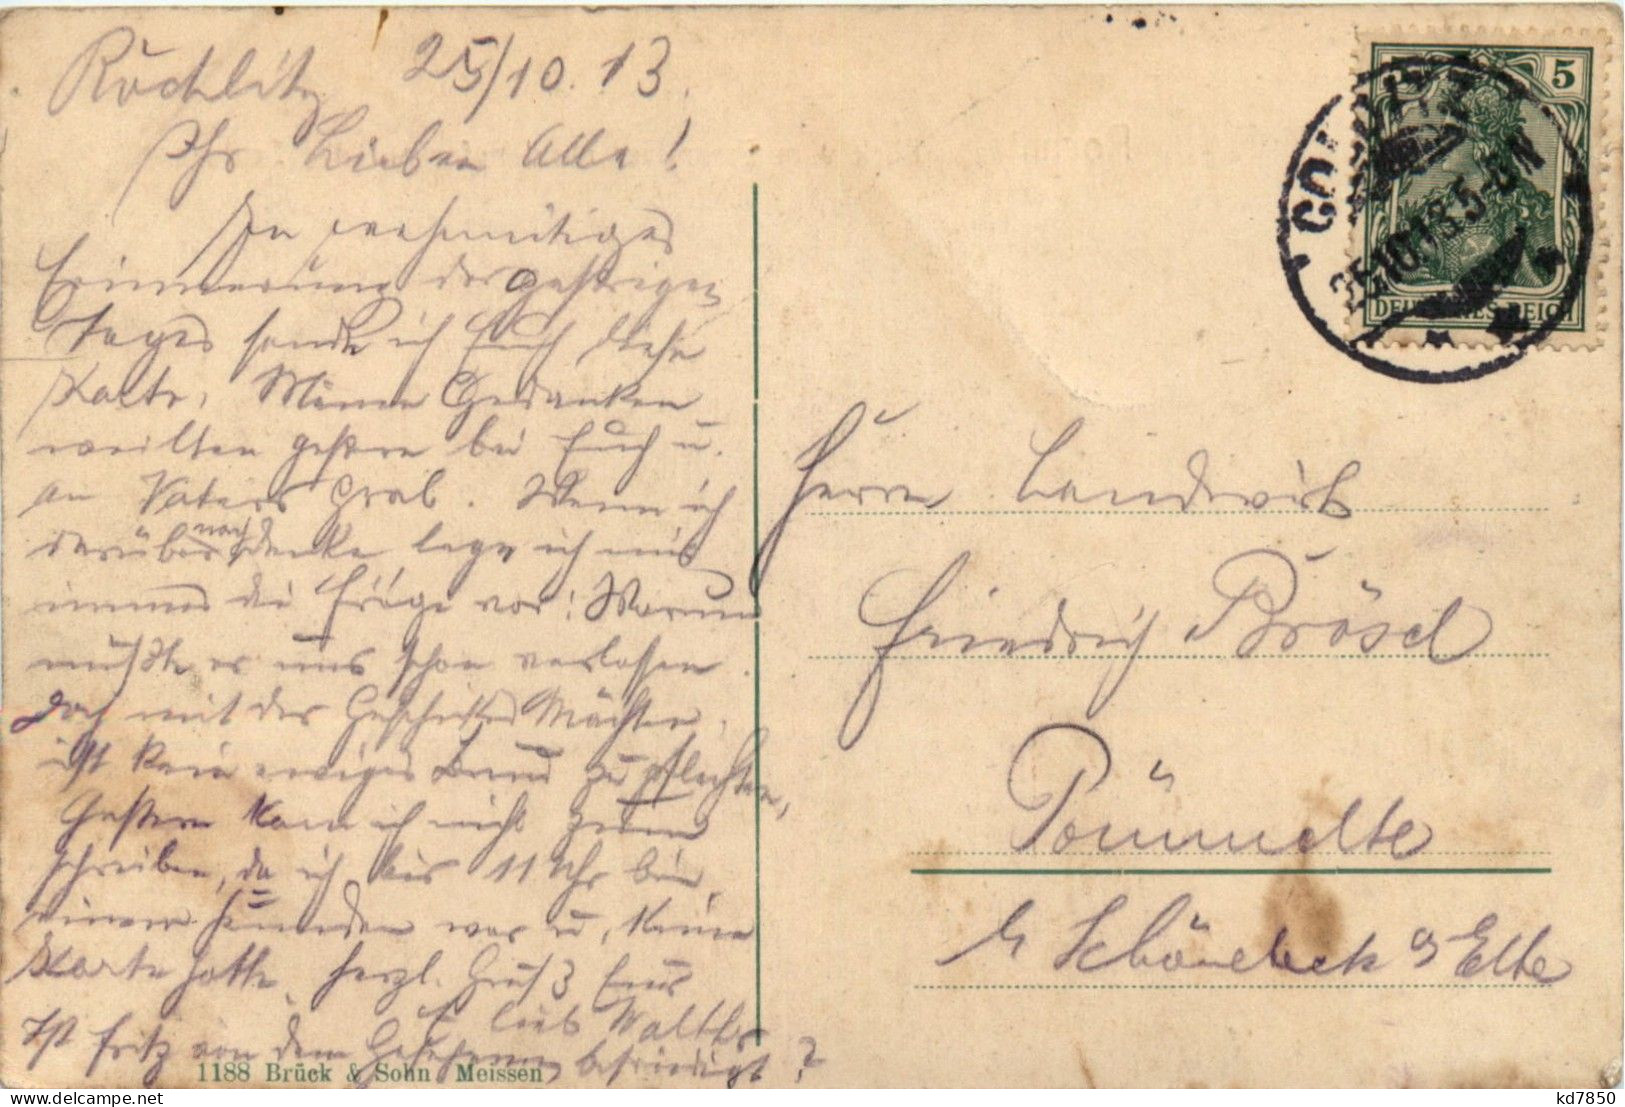 Rochlitz 25/10.13.
Ihr Lieben Alle!
In wehmütiger
Erinnerung des gestrigen
Tages sende ich Euch diese
Karte. Meine Gedanken
weilten gestern bei Euch u.
an Vaters Grab. Wenn ich
darüber nachdenke lege ich mir
immer die Frage vor: Warum
mußte er uns schon verlassen.
Doch mit des Geschickes Mächten,
ist kein ewiger Bund zu flechten,
Gestern kam ich nicht zum
schreiben, da ich bis 11 Uhr bei
einem Freunde war u. keine
Karte hatte. Herzl. Gruß Euer
lieb Walther
Ist Fritz von dem Gesehenen befriedigt?
1188 Brück & Sohn Meissen
5
DEUTSCHES REICH
25.10.13.5-6N
Herrn Landwirt
Friedrich Brösel
Pömmelte
b/ Schönebeck a/ Elbe
kd7850